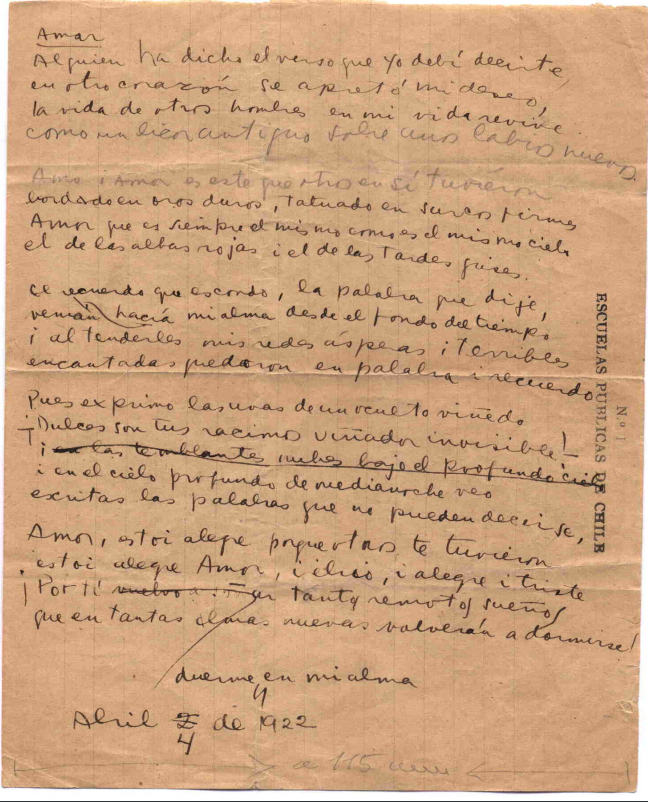 Amar
Alguien ha dicho el verso que yo debí decirte,
en otro corazón se apretó mi deseo,
la vida de otros hombres en mi vida revive
como un licor antiguo sobre unos labios nuevos.
Amo i amor es este que otros en sí tuvieron
bordado en oros duros, tatuado en surcos firmes
Amor que es siempre el mismo como es el mismo cielo
el de las albas rojas i el de las tardes grises.
el recuerdo que escondo, la palabra que dije,
venían hacia mi alma desde el fondo del tiempo
i al tenderles mis redes ásperas i terribles
encantadas quedaron en palabra i recuerdo
Pues exprimo las uvas de un oculto viñedo
¡Dulces son tus racimos viñador invisible!—
i en las temblantes noches bajo el profundo cielo
i en el cielo profundo de medianoche veo
escritas las palabras que no pueden decirse,
Amor, estoi alegre porque otros te tuvieron
estoi alegre Amor, i alegre i triste
¡Por tí vuelvo a tantos remotos sueños
que en tantas almas nuevas volverán a dormirse!
duermen en mi alma
Abril 4 de 1922
a 115 mm
Nº 1
ESCUELAS PUBLICAS DE CHILE